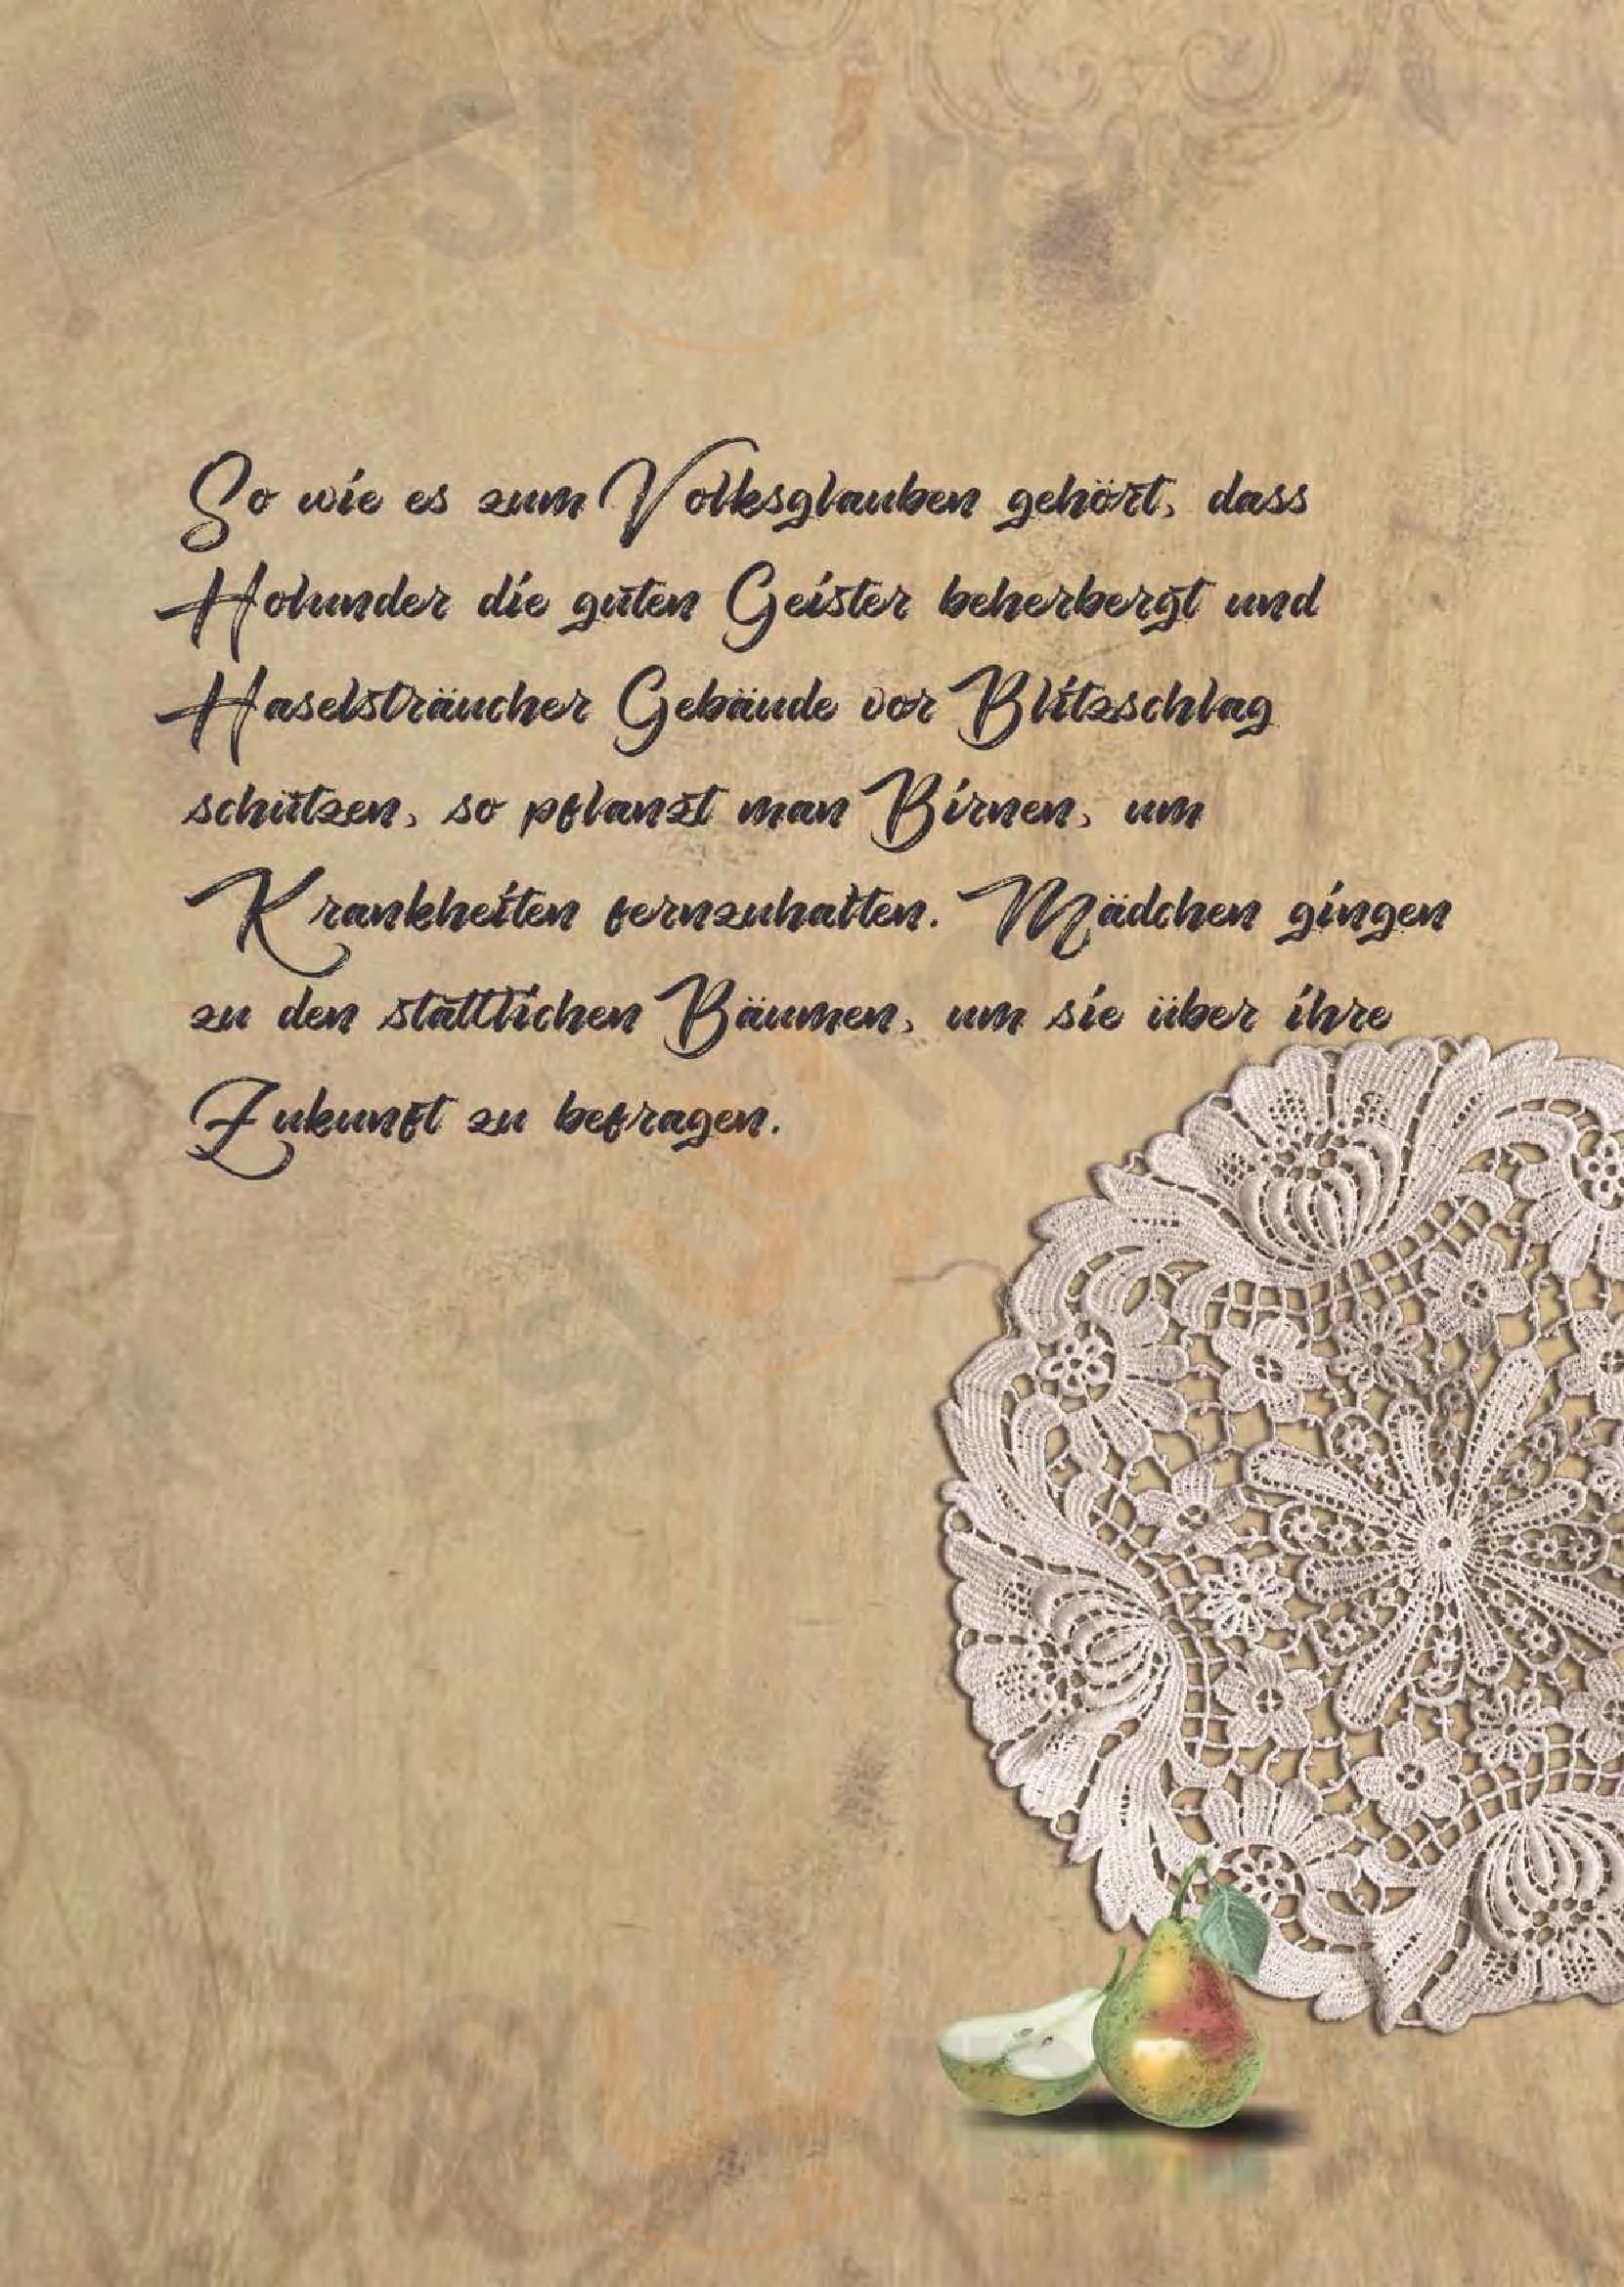 sluurpy
So wie es zum Volksglauben gehört, dass
Holunder die guten Geister beherbergt und
Haselsträucher Gebäude vor Blitzschlag
schützen, so pflanzt man Birnen, um
Krankheiten fernzuhalten. Mädchen gingen
zu den stattlichen Bäumen, um sie über ihre
Zukunft zu befragen.
sluurpy
sluurpy